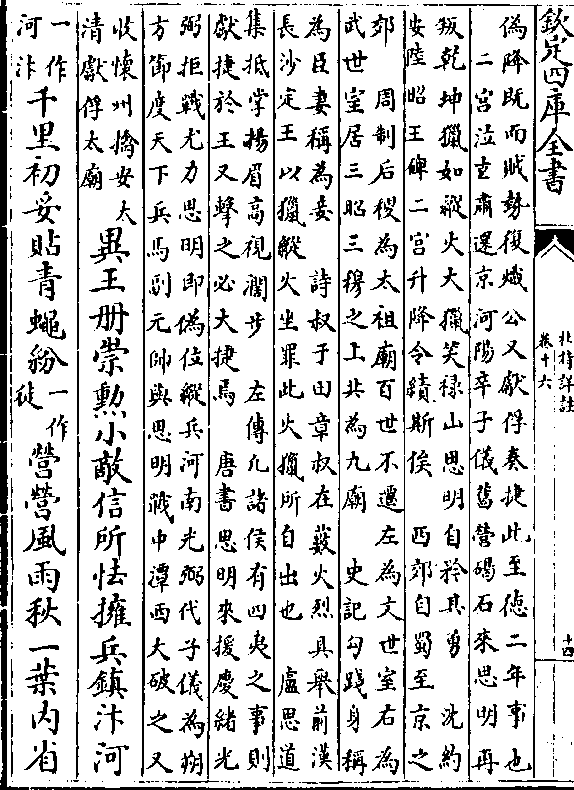 欽定四庫全書
杜詩詳註
卷十六
十四
偽降既而賊勢復熾公又獻俘奏捷此至德二年事也
二宮泣空肅還京河陽卒子儀舊營碣石來思明再
叛乾坤獵如縱火大獵笑祿山思明自矜其勇 沈約
安陸昭王碑二宮升降令績斯俟 西郊自蜀至京之
郊 周制后稷為太祖廟百世不遷左為文世室右為
武世室居三昭三穆之上共為九廟 史記勾踐身稱
為臣妻稱為妾 詩叔于田章叔在藪火烈具舉前漢
長沙定王以獵縱火坐罪此火獵所自出也 盧思道
集抵掌揚眉高視濶步 左傳凡諸侯有四夷之事則
獻捷於王又擊之必大捷焉 唐書思明來援慶緒光
弼拒戰尤力思明即偽位縱兵河南光弼代子儀為朔
方節度天下兵馬副元帥與思明戰中潭西大破之又
收懷州擒安太
清獻俘太廟
異王册崇勲小敵信所怯擁兵鎮汴河
一作
河汴
千里初妥貼青蠅紛
一作
徒
營營風雨秋一葉内省